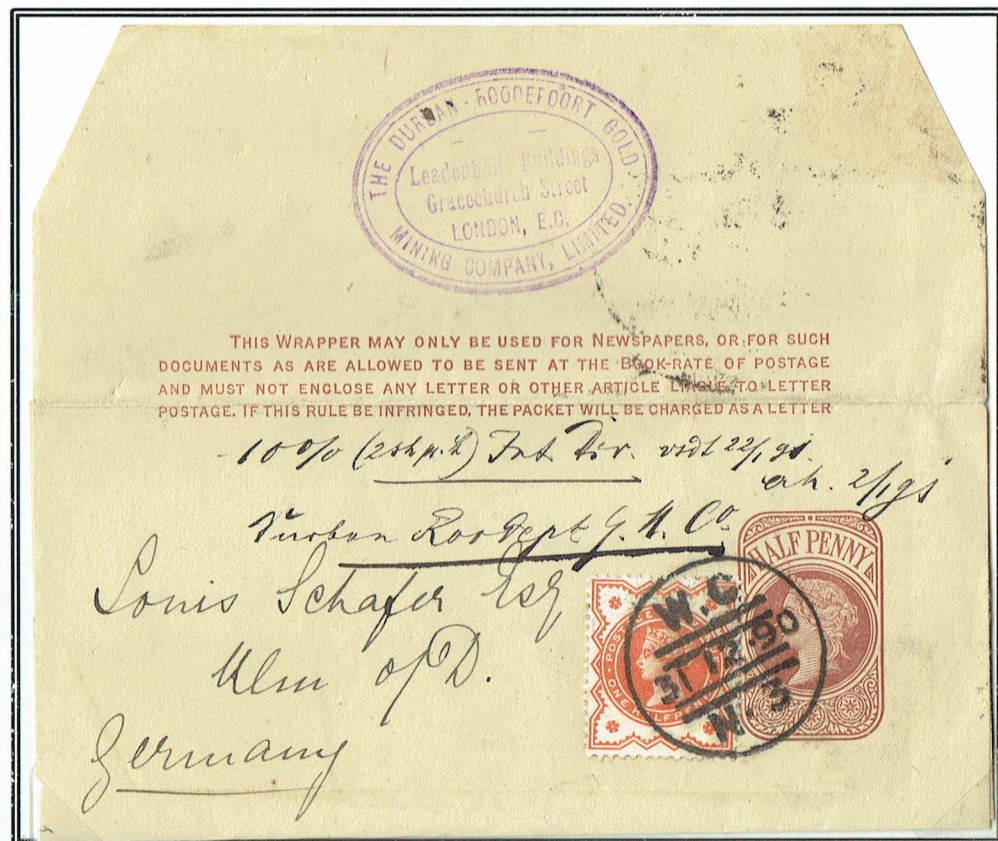 THE DURBAN - ROODEPOORT GOLD
MINING COMPANY, LIMITED.
Leadenhall Buildings
Gracechurch Street
LONDON, E.C.
THIS WRAPPER MAY ONLY BE USED FOR NEWSPAPERS, OR FOR SUCH
DOCUMENTS AS ARE ALLOWED TO BE SENT AT THE BOOK-RATE OF POSTAGE
AND MUST NOT ENCLOSE ANY LETTER OR OTHER ARTICLE LIABLE TO LETTER
POSTAGE. IF THIS RULE BE INFRINGED, THE PACKET WILL BE CHARGED AS A LETTER
10% Int. Div. 22/1 91.
2/1 91
Durban Roodept G. M. Co
HALF PENNY
Louis Schafer Esq
Ulm o/D.
Germany
POSTAGE
ONE HALFPENNY
W.C.
31 12 90
N. 9